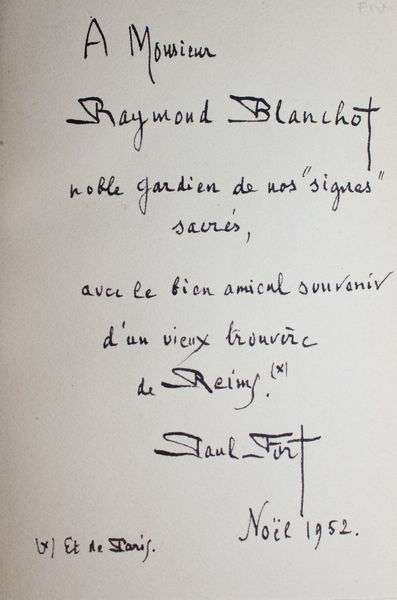 A Monsieur
Raymond Blanchot
noble gardien de nos "signes"
sacrés,
avec le bien amical souvenir
d'un vieux trouvère
de Reims.(x)
Paul Fort
Noël 1952.
(x) Et de Paris.